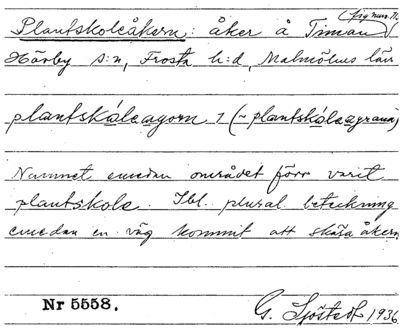 (fig num. N.
Plantskoleåkern: åker å Timan
Härby s:n, Frosta h:d, Malmöhus län
plantskåleagorn 1 (~ plantskåleagrana)
Namnet emedan området förr varit
plantskola. Ibl. plural beteckning
emedan en väg kommit att skära åkern.
Nr 5558.
G. Sjöstedt 1936